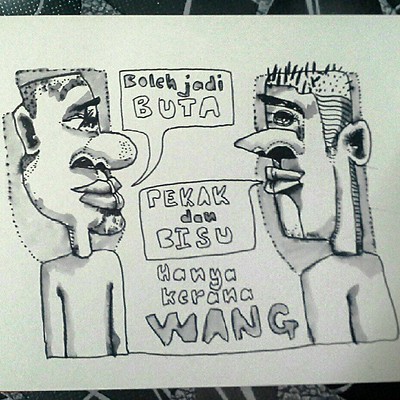 Boleh jadi
BUTA
PEKAK
dan
BISU
Hanya
kerana
WANG